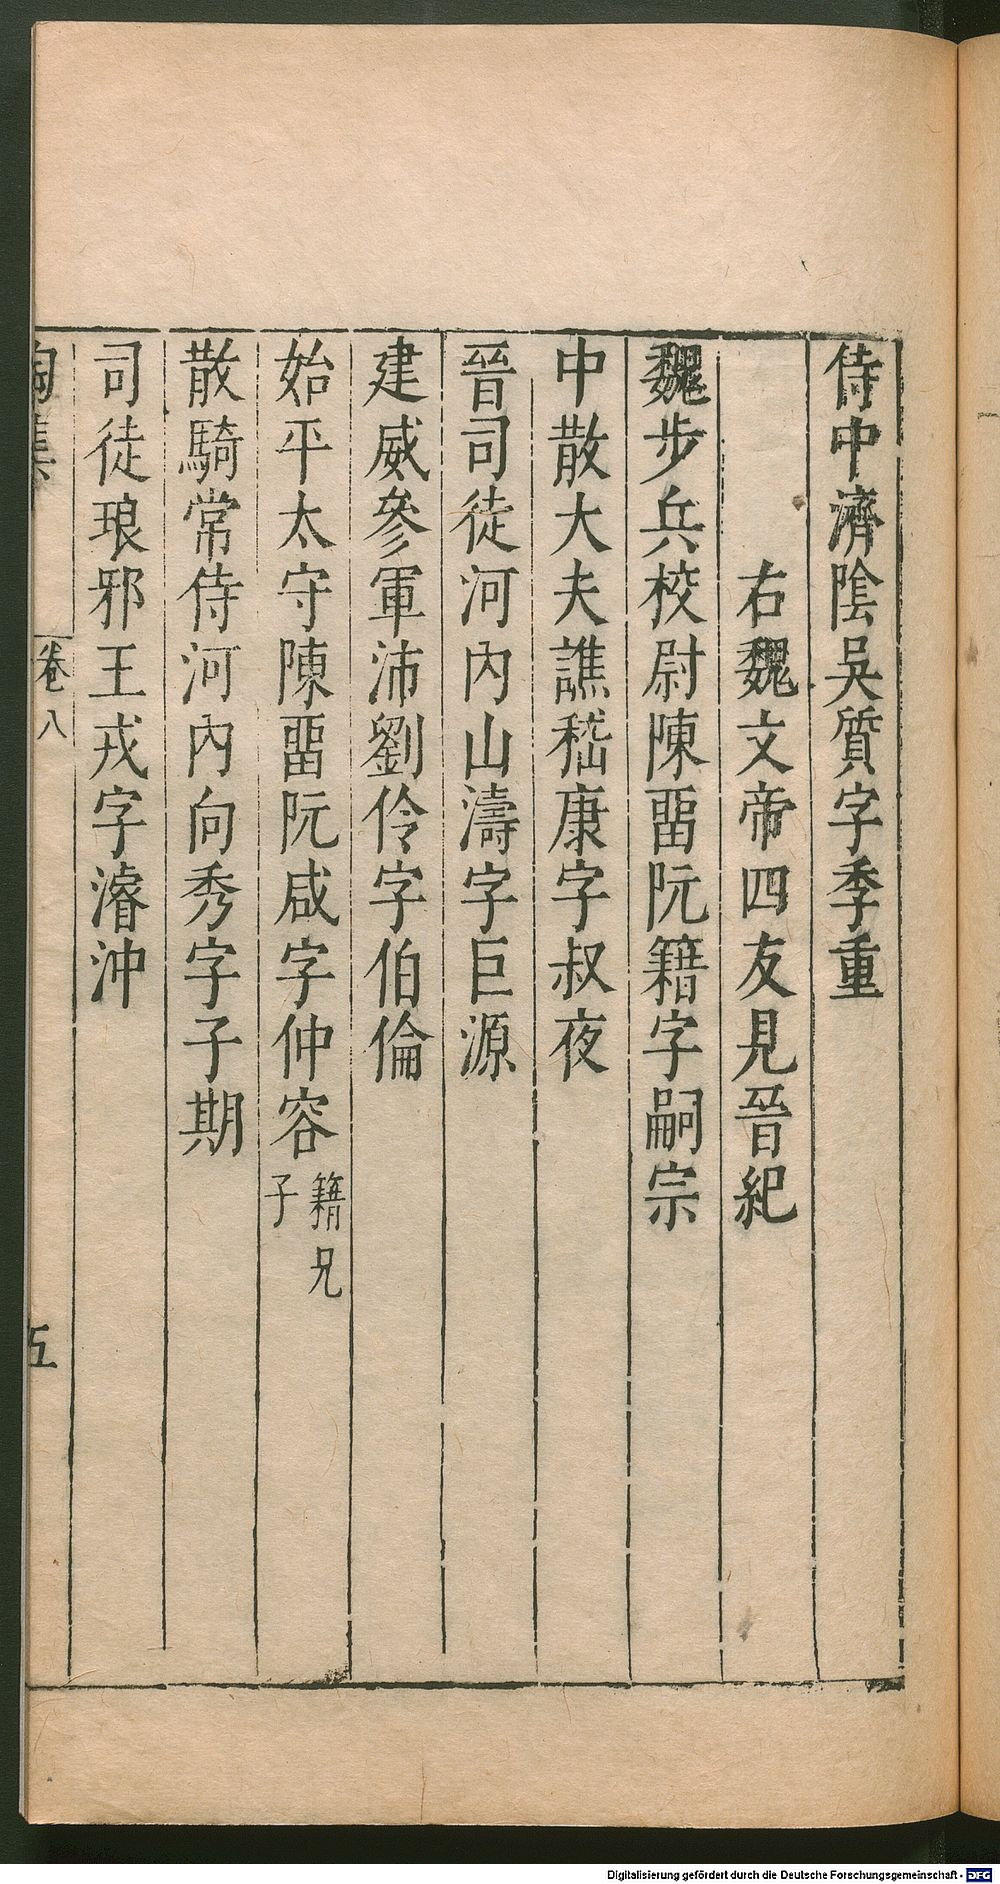 侍中濟陰吳質字季重
右魏文帝四友見晉紀
魏步兵校尉陳畱阮籍字嗣宗
中散大夫譙嵇康字叔夜
晉司徒河內山濤字巨源
建威參軍沛劉伶字伯倫
始平太守陳畱阮咸字仲容籍兄子
散騎常侍河內向秀字子期
司徒琅邪王戎字濬沖
陶集 卷八 五
Digitalisierung gefördert durch die Deutsche Forschungsgemeinschaft - DFG